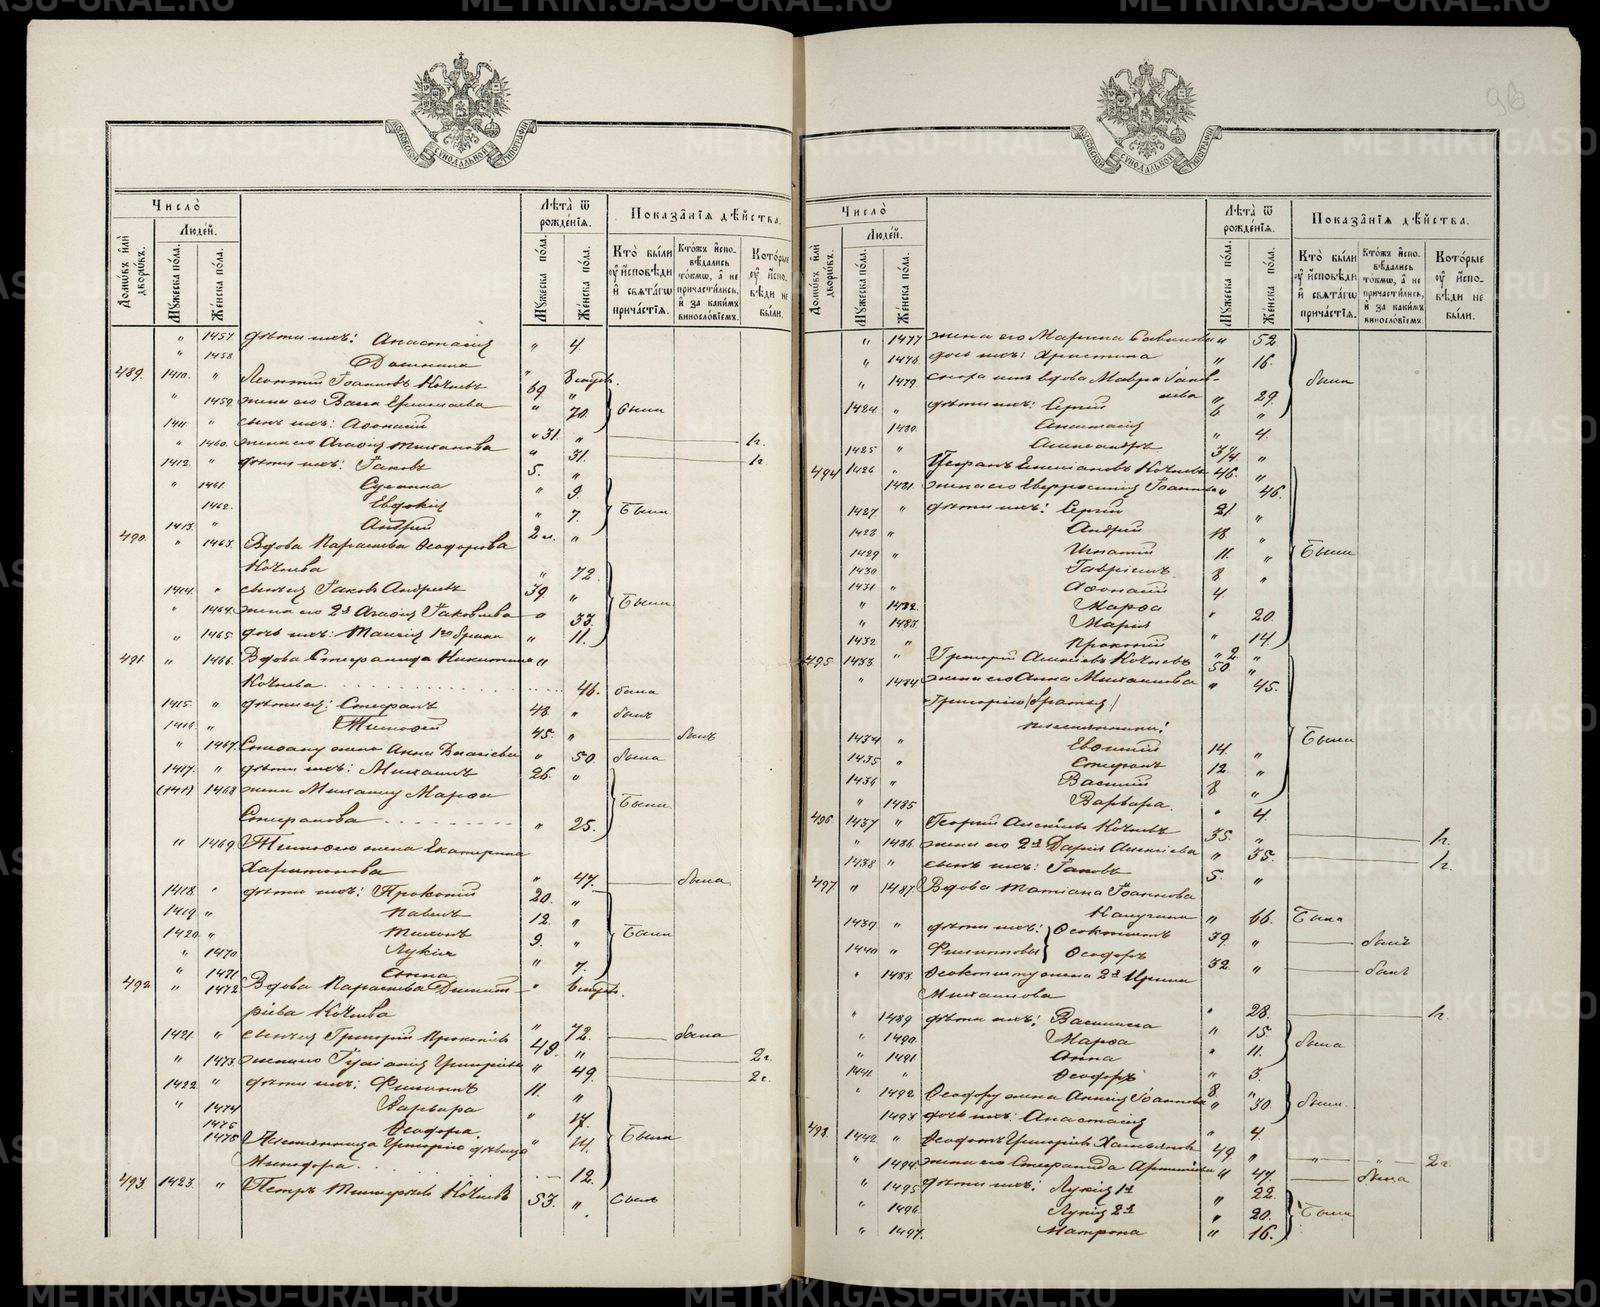 METRIKI.GASO-URAL.RU
96
МОСКОВСКОЙ СѴНОДАЛЬНОЙ ТИПОГРАФІИ
Число̀
Людей.
Лѣта̀ ѿ рожде́нїѧ.
Показа̑нїѧ дѣ́йства.
Домѡ́въ и҆лѝ дворѡ́въ.
Мꙋ́жеска по́ла.
Же́нска по́ла.
Мꙋ́жеска по́ла.
Же́нска по́ла.
Кто̀ бы́ли ᲂу҆ и҆сповѣди и҆ свѧта́гѡ прича́стїѧ.
Кто́жъ и҆спо-вѣдались то́кмѡ, а҆ не причасти́лись, и҆ за каки́мъ винословїемъ.
Кото́рые ᲂу҆ и҆спо-вѣди не бы́ли.
" 1457 дѣти ихъ: Анастасія " 4.
" 1458 Домника " 8 мѣс.
489. 1410. " Леонтій Іоанновъ Кочневъ 69 "
" 1459 жена его Васса Ермолаева " 70. были
1411 " сынъ ихъ: Аѳонасій 31. " 1 г.
" 1460. жена его Агафія Михайлова " 31. 1 г.
1412. " дѣти ихъ: Іаковъ 5. "
" 1461. Сусанна " 9.
1462. Евдокія " 7. Были
1413. " Андрей 2 м. "
490. " 1463. Вдова Параскева Ѳеодорова
Кочнева " 72.
1414. " сынъ ея Іаковъ Андреевъ 39. "
" 1464. жена его 2я Агафія Іаковлева " 33. Были
" 1465. дочь ихъ: Маисія 1го брака " 11.
491. " 1466. Вдова Стефанида Никитина "
Кочнева 46. была
1415. " дѣти ея: Стефанъ 48. " былъ
1416. " Тимоѳей 45. " былъ
" 1467. Стефану жена Анна Васильева " 50 была
1417. " дѣти ихъ: Михаилъ 26. "
(1417) 1468 жена Михаилу Марѳа
Стефанова " 25. Были
" 1469 Тимоѳею жена Екатерина
Харитонова " 47. была
1418. " дѣти ихъ: Прокопій 20. "
1419. " Павелъ 12. "
1420. " Тихонъ 9. " Были
" 1470 Лукія " 7.
" 1471 Анна
492 " 1472 Вдова Параскева Димит-
ріева Кочнева " 72. была
1421. " сынъ ея Григорій Прокопіевъ 49. " 2 г.
" 1473. жена его Іуліанія Григорьева " 49. 2 г.
1422 " дѣти ихъ: Филиппъ 11. "
" 1474 Варвара " 17.
1476 Ѳеодора " 14. Были
1475 Племянница Григорію дѣвица
Минодора 12.
493. 1423. " Петръ Тимоѳеевъ Кочневъ 53. " былъ
Число̀
Людей.
Лѣта̀ ѿ рожде́нїѧ.
Показа̑нїѧ дѣ́йства.
Домѡ́въ и҆лѝ дворѡ́въ.
Мꙋ́жеска по́ла.
Же́нска по́ла.
Мꙋ́жеска по́ла.
Же́нска по́ла.
Кто̀ бы́ли ᲂу҆ и҆сповѣди и҆ свѧта́гѡ прича́стїѧ.
Кто́жъ и҆спо-вѣдались то́кмѡ, а҆ не причасти́лись, и҆ за каки́мъ винословїемъ.
Кото́рые ᲂу҆ и҆спо-вѣди не бы́ли.
" 1477 жена его Марина Саввинова " 52.
" 1478. дочь ихъ: Христина " 16.
" 1479. сноха ихъ вдова Мавра Іаков-
лева " 29. были
1424. " дѣти ихъ: Сергій 6 "
1480. Анастасія " 4.
1425 " Александръ 3/4 "
494 1426 " Стефанъ Емеліановъ Кочневъ 46. "
1481. жена его Евфросинія Іоаннова " 46.
1427 " дѣти ихъ: Сергій 21. "
1428 " Андрей 18 "
1429 " Игнатій 11. " Были
1430 Гавріилъ 8 "
1431 " Аѳонасій 4.
" 1482. Марѳа " 20.
" 1483. Марія " 14.
1432 " Прокопій 2. "
495. 1433 " Григорій Алексіевъ Кочневъ 50 "
" 1484 жена его Анна Михайлова " 45.
Григорію /братья/
племянники:
1434 " Евѳимій 14. " Были
1435 " Стефанъ 12. "
1436 " Василій 8 "
" 1485 Варвара " 4
496 1437 " Георгій Алексіевъ Кочневъ 35. " 1 г.
" 1486 жена его 2я Дарія Алексіева " 35. 1 г.
1438 " сынъ ихъ: Іаковъ 5. "
497 " 1487. Вдова Татіана Іоаннова
" 66. Была
1439 " дѣти ихъ: Ѳеоктистъ 39. " былъ
1440 " Филипповы Ѳеодоръ 32. " былъ
" 1488. Ѳеоктисту жена 2я Ирина
Михайлова " 28. 1 г.
" 1489 дѣти ихъ: Василисса " 15.
" 1490 Марѳа " 11. была
" 1491 Анна " 3.
1441. " Ѳеодоръ 8. "
" 1492 Ѳеодору жена Анисія Іоаннова " 30. были
" 1493 дочь ихъ: Анастасія " 4.
498. 1442 " Ѳеодотъ Григоріевъ 49 " " " 2 г.
" 1494 жена его Стефанида Артеміева " 47. была
" 1495 дѣти ихъ: Лукія 1я " 22.
" 1496. Лукія 2я " 20. Были
" 1497. Матрона " 16.